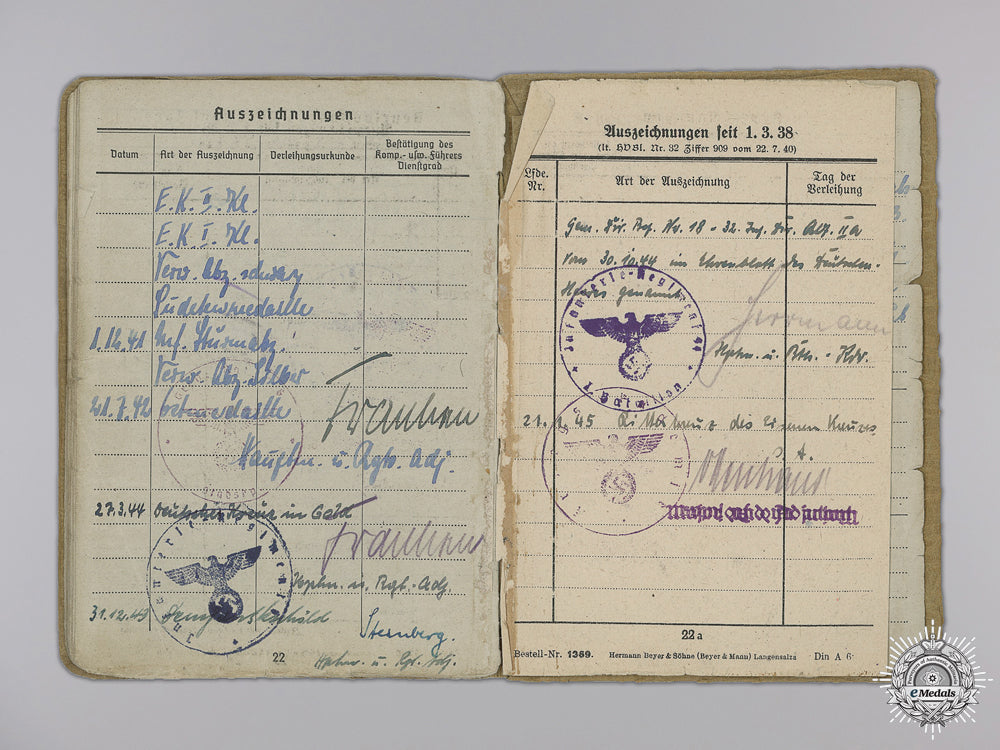 Auszeichnungen
Datum Art der Auszeichnung Verleihungsurkunde Bestätigung des Komp.- usw. Führers Dienstgrad
E.K. II. Kl.
E.K. I. Kl.
Verw. Abz. schwarz
Sudetenmedaille
1.12.41 Inf. Sturmabz.
Verw. Abz. Silber
21.7.42 Ostmedaille
Franken
Hauptm. u. Rgts. Adj.
27.3.44 Deutsches Kreuz in Gold
Franken
Hptm. u. Rgt.-Adj.
31.12.43 Demjanskschild
Sternberg.
Hptm. u. Rgt. Adj.
Infanterie-Regiment
22
Auszeichnungen seit 1.3.38
(lt. HVBl. Nr. 32 Ziffer 909 vom 22.7.40)
Lfde. Nr. Art der Auszeichnung Tag der Verleihung
Gem. Div. Bef. Nr. 18 - 32. Inf. Div. Abt. IIa
vom 30.10.44 im Ehrenblatt des Deutschen
Heeres genannt
Herrmann
Hptm. u. Btls.-Kdr.
Infanterie-Regiment 94
I. Bataillon
45 Ritterkreuz des Eisernen Kreuzes
22a
Bestell-Nr. 1369. Hermann Beyer & Söhne (Beyer & Mann) Langensalza Din A 6
eMedals